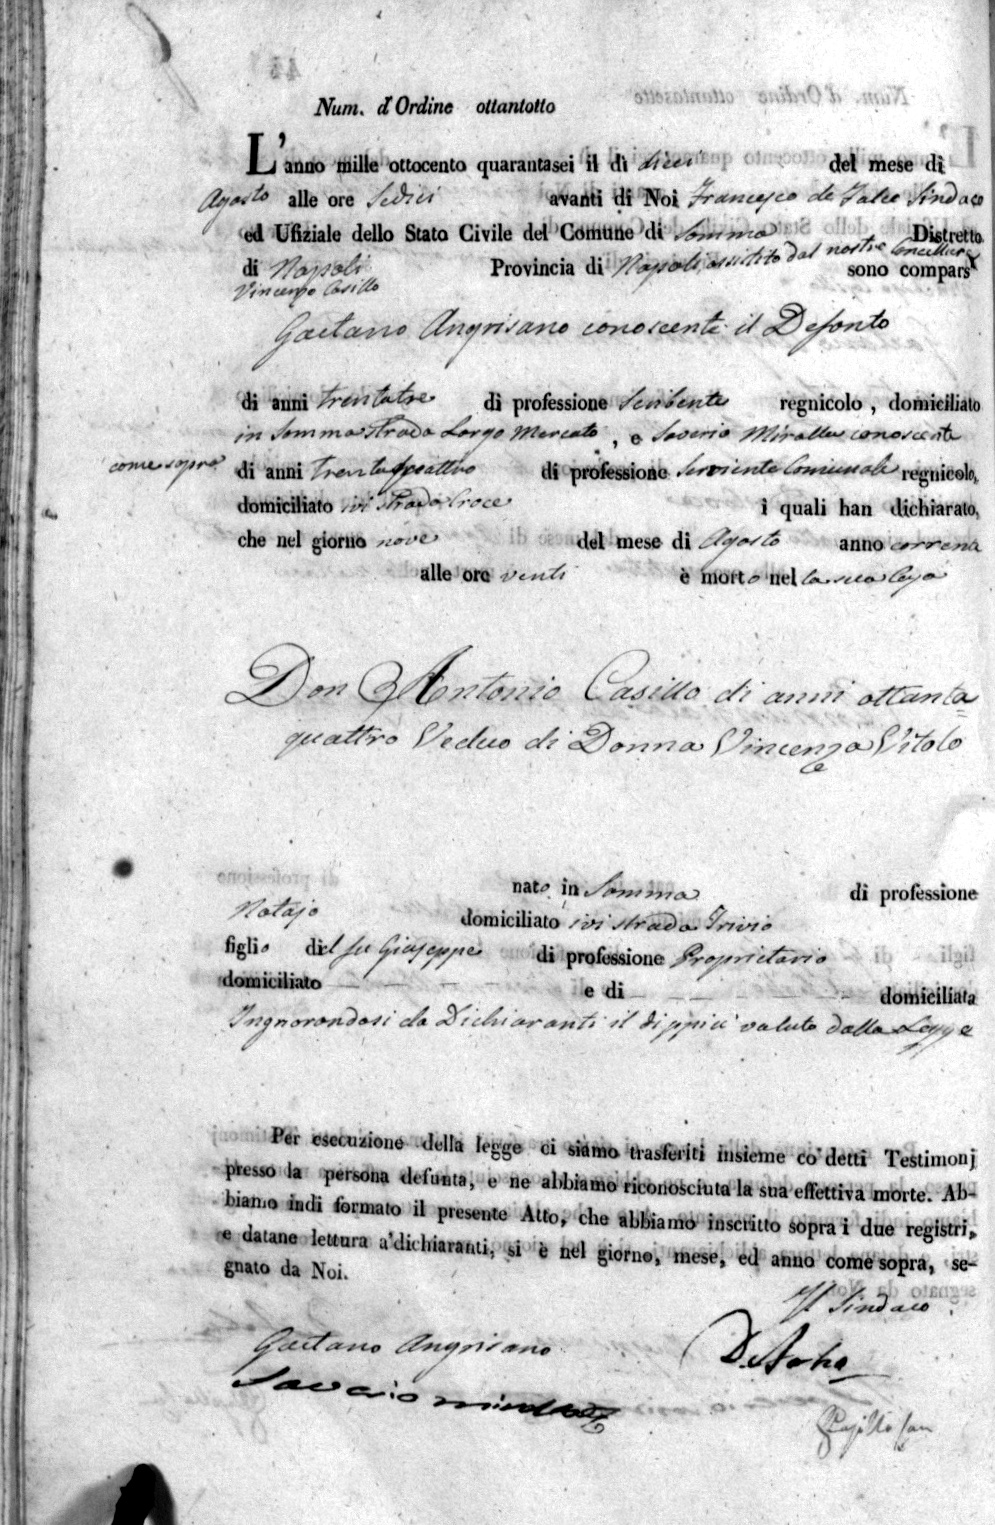 Num. d'Ordine ottantotto
L'anno mille ottocento quarantasei il dì dieci del mese di
Agosto alle ore Sedici avanti di Noi Francesco de Falco Sindaco
ed Ufiziale dello Stato Civile del Comune di Somma Distretto
di Napoli Provincia di Napoli, assistito dal nostro Cancelliere sono compars
Vincenzo Casillo
Gaetano Angrisano conoscente il Defonto
di anni trentatre di professione Scribente regnicolo, domiciliato
in Somma strada Largo Mercato, e Saverio conoscente
come sopra di anni trentaquattro di professione Serviente Comunale regnicolo,
domiciliato ivi strada Croce i quali han dichiarato,
che nel giorno nove del mese di Agosto anno corrente
alle ore venti è morto nel la sua Casa
Don Antonio Casillo di anni ottanta=
quattro Veduo di Donna Vincenza Vitolo
nato in Somma di professione
Notajo domiciliato ivi strada Trivio
figlio del fu Giuseppe di professione Proprietario
domiciliato e di domiciliata
Ingnorandosi da Dichiaranti il dippiù voluto dalla Legge
Per esecuzione della legge ci siamo trasferiti insieme co' detti Testimonj
presso la persona defunta, e ne abbiamo riconosciuta la sua effettiva morte. Ab-
biamo indi formato il presente Atto, che abbiamo inscritto sopra i due registri,
e datane lettura a' dichiaranti, si è nel giorno, mese, ed anno come sopra, se-
gnato da Noi.
Il Sindaco
Gaetano Angrisano
Saverio
Casillo